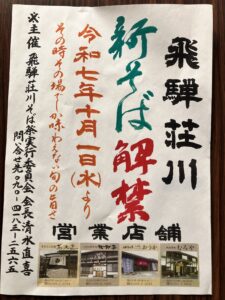 飛騨荘川
新そば解禁
令和七年十月一日(水)より
その時その場でしか味わえない旬の旨さ
営業店舗
※主催 飛騨荘川そば祭実行委員会 会長清水直喜
問合せ先 〇九〇-四一八三-二五六五